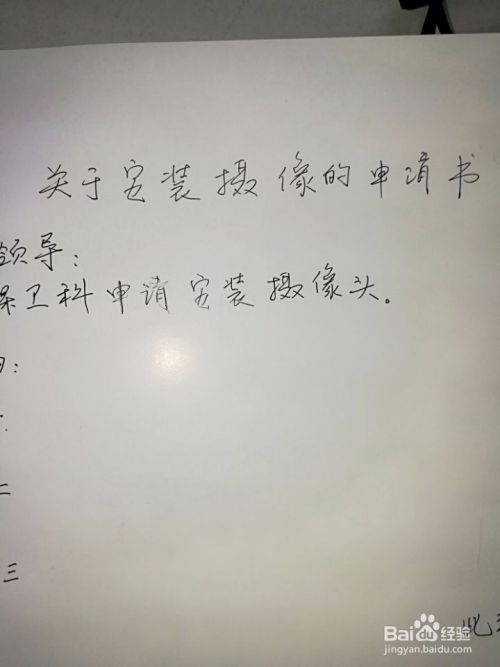 关于安装摄像的申请书
领导:
保卫科申请安装摄像头。
:
二
三
此
Baidu经验
jingyan.baidu.com